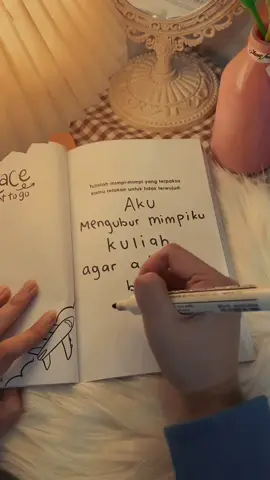 ace
t to go
tulislah mimpi-mimpi yang terpaksa
kamu relakan untuk tidak terwujud:
Aku
Mengubur mimpiku
kuliah
agar a